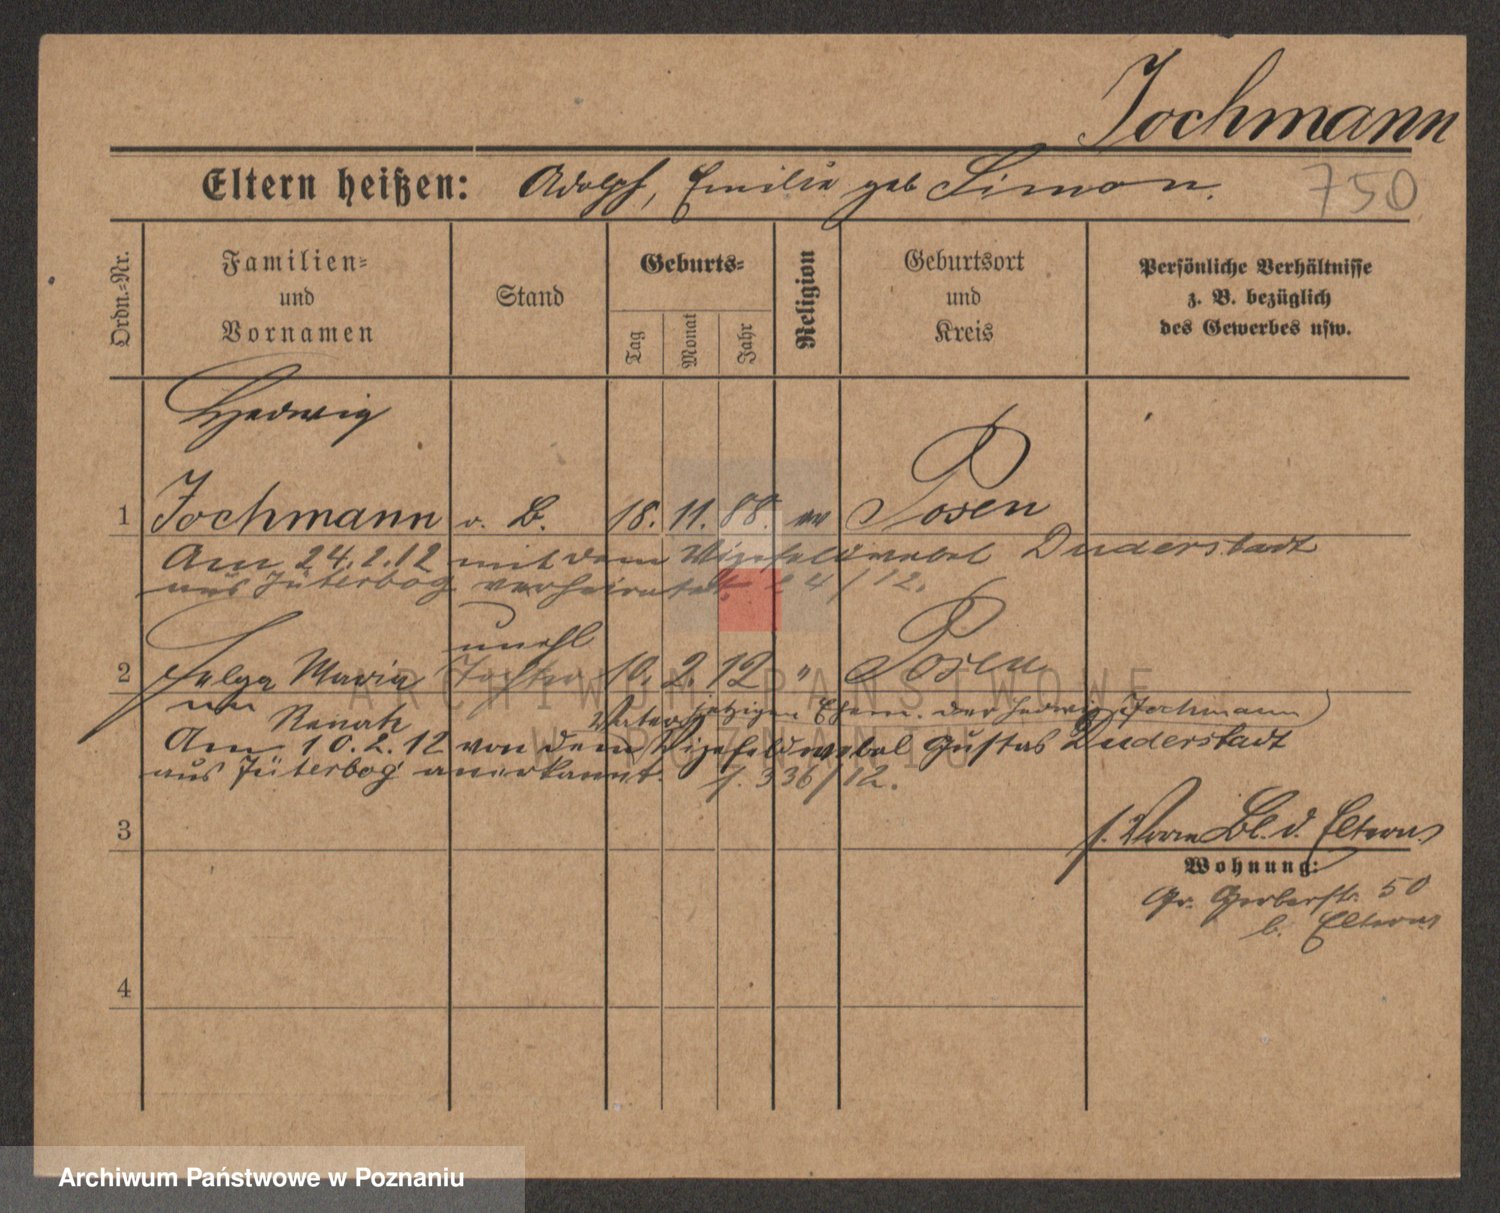 Jochmann
Eltern heißen: Adolph, Emilie geb Simon.
750
Ordn.-Nr.
Familien-
und
Vornamen
Stand
Geburts-
Tag
Monat
Jahr
Religion
Geburtsort
und
Kreis
Persönliche Verhältnisse
z. B. bezüglich
des Gewerbes usw.
Hedwig
1 Jochmann o. B. 18. 11. 88. ev Posen
Am 24.2.12 mit dem Vizefeldwebel Duderstadt
aus Jüterbog verheiratet. 24/12.
unehl
2 Helga Maria Tochter 10. 2. 12 " Posen
Renate
Vater jetzigen Ehem. der Hedwig Jochmann
Am 10.2.12 von dem Vizefeldwebel Gustav Duderstadt
aus Jüterbog anerkannt. J. 336/12.
3
Bl. d. Eltern
Wohnung:
Gr. Gerberstr. 50
b. Eltern
4
ARCHIWUM PAŃSTWOWE
W POZNANIU
Archiwum Państwowe w Poznaniu